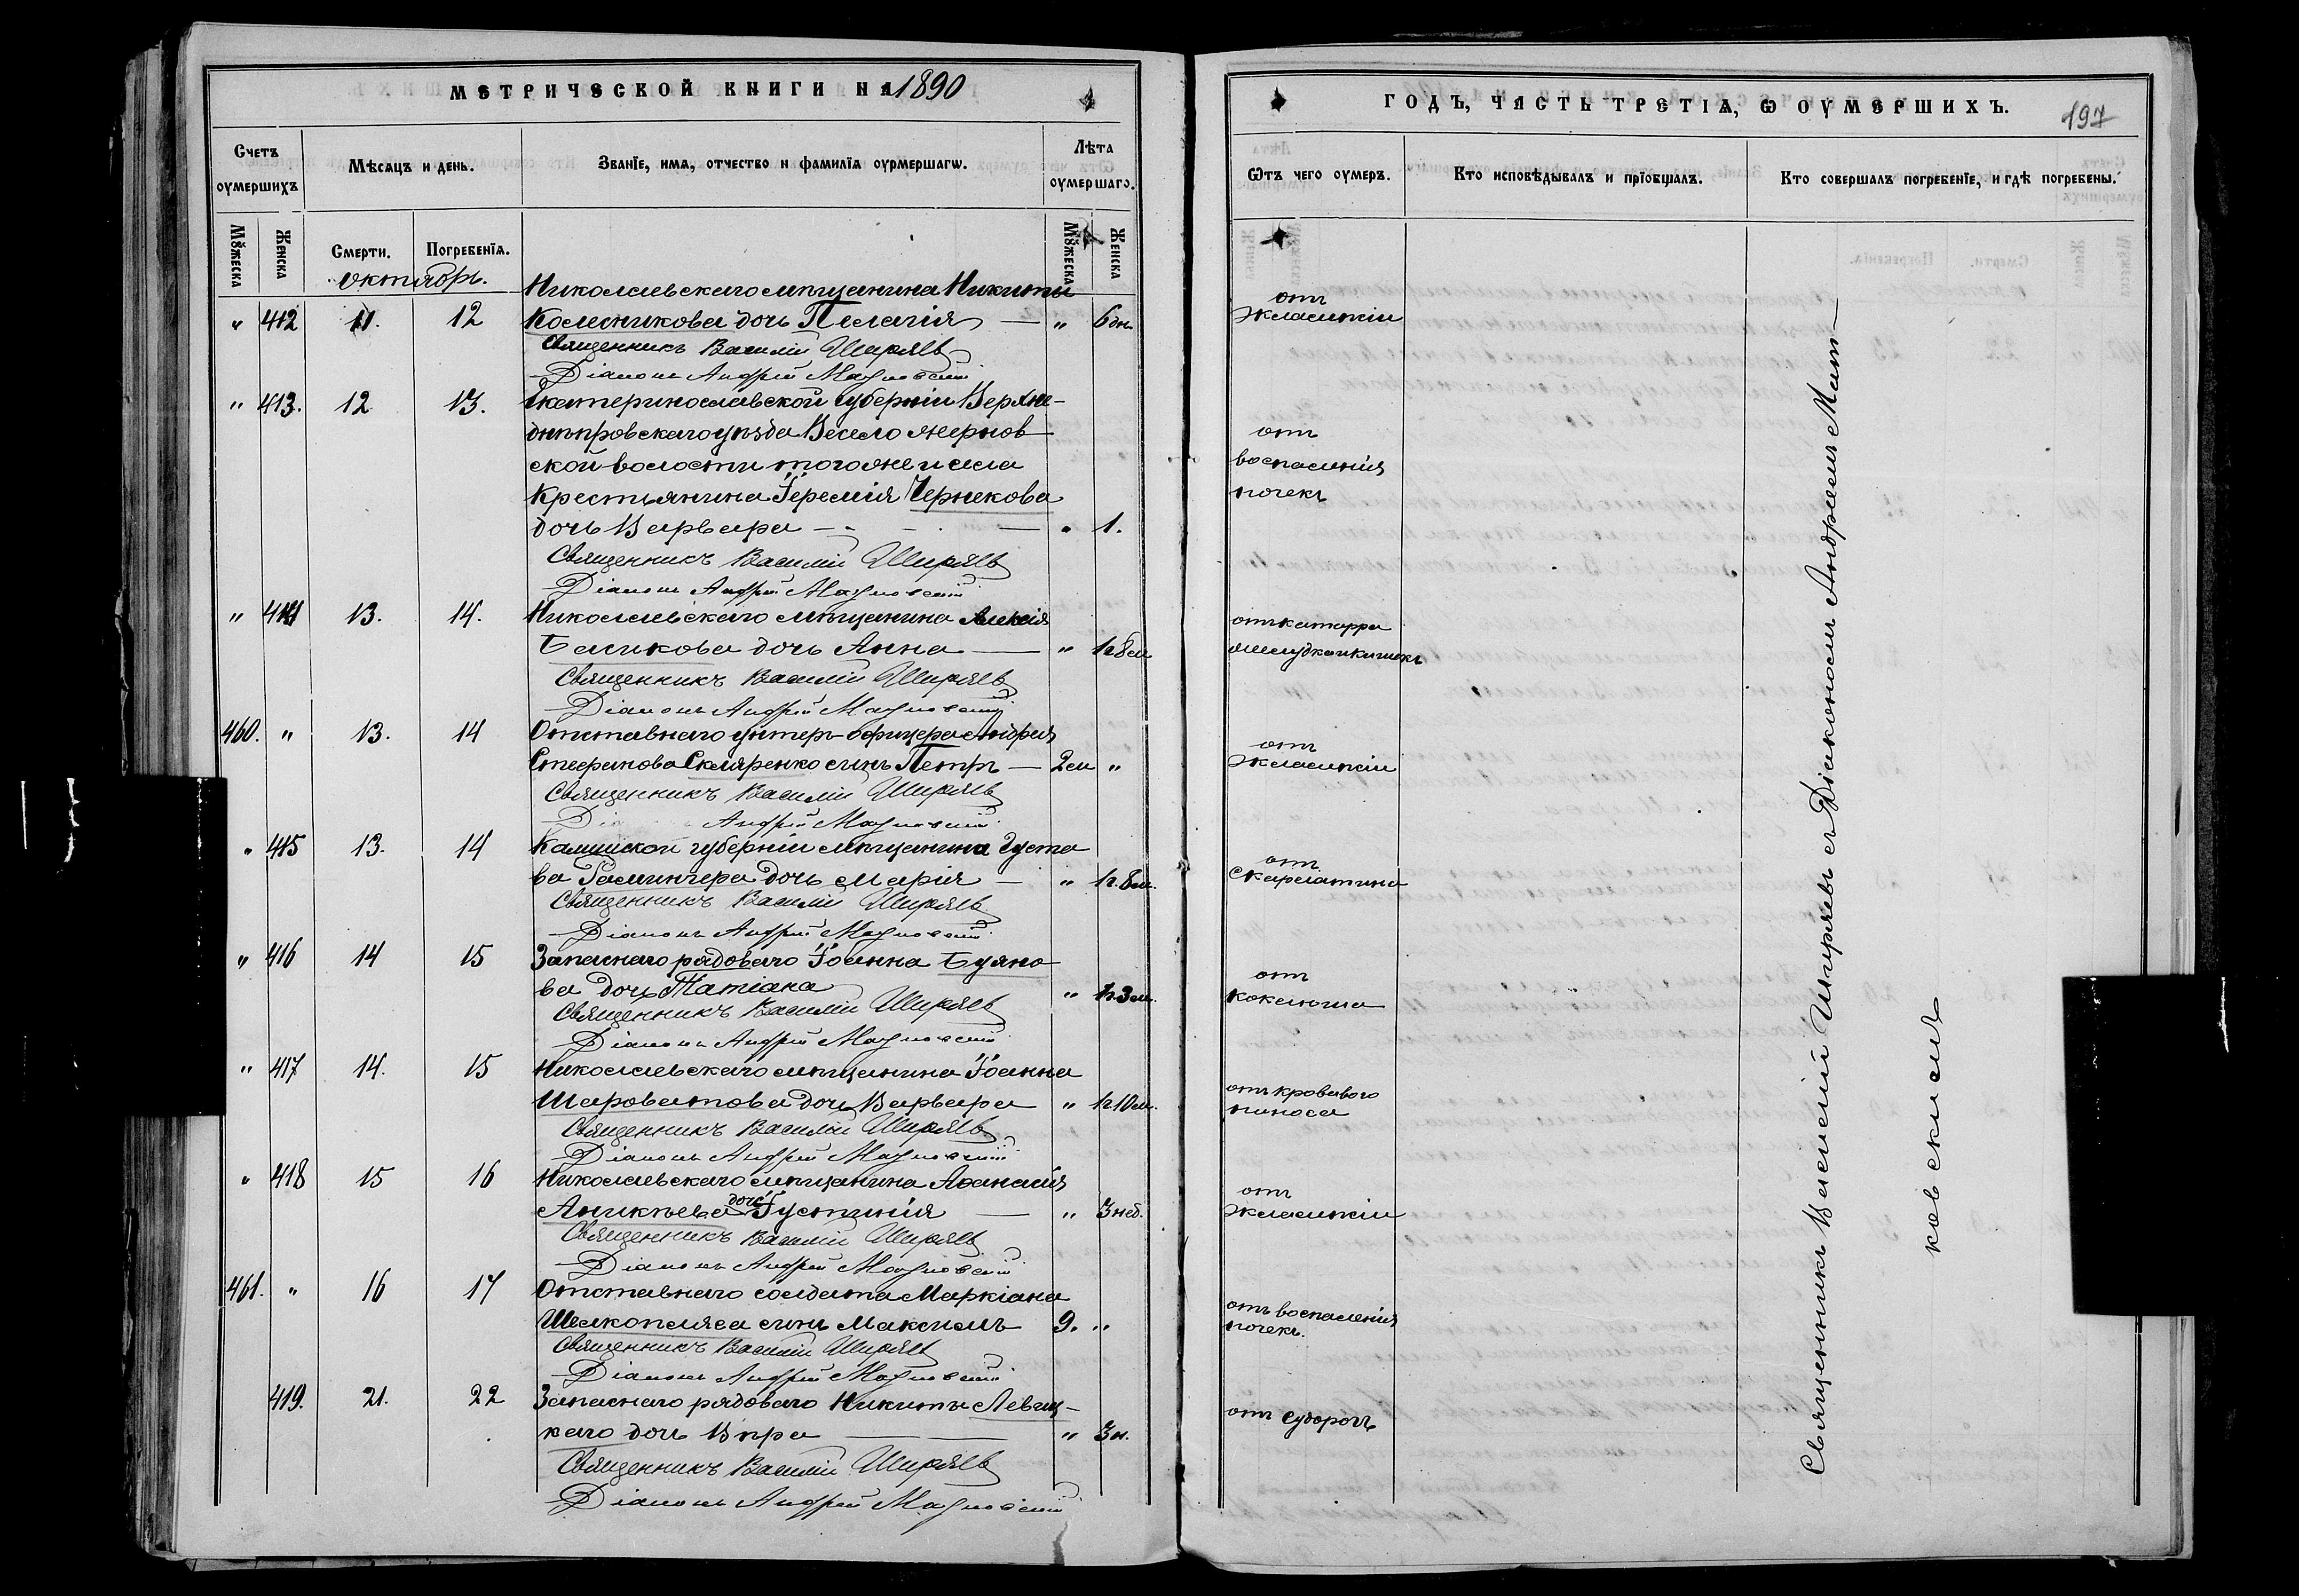 МЕТРИЧЕСКОЙ КНИГИ НА 1890
Счетъ оумершихъ
Мѣсяцъ и день.
Званїе, имѧ, отчество и фамилїѧ оурмершагѡ.
Лѣта оумершаго.
Мꙋжеска
Женска
Смерти.
Погребенїѧ.
Мꙋжеска
Женска
Октябрь.
Николаевскаго мѣщанина Никиты
" 412 11. 12 Колесникова дочь Пелагія — " 6 дн.
Священникъ Василій Ширяевъ
Діаконъ Андрей
" 413. 12 13. Екатеринославской губерніи Верхне-
днѣпровскаго уѣзда Весело
ской волости того же села
Крестьянина Іеремія Чернекова
дочь Варвара — " 1.
Священникъ Василій Ширяевъ
Діаконъ Андрей
" 414 13. 14. Николаевскаго мѣщанина Алексія
Баликова дочь Анна — " 1 г. 8 м
Священникъ Василій Ширяевъ
Діаконъ Андрей
460. " 13. 14 Отставнаго унтеръ-офицера Андрея
Стефанова Скляренко сынъ Петръ — 2 м "
Священникъ Василій Ширяевъ
Андрей
" 415 13. 14 губерніи мѣщанина Густа
ва дочь Марія — " 1 г. 8 м.
Священникъ Василій Ширяевъ
Діаконъ Андрей
" 416 14 15 Запаснаго рядоваго Іоанна Буяно
ва дочь Татіана " 1 г. 3 м.
Священникъ Василій Ширяевъ
Діаконъ Андрей
" 417 14. 15 Николаевскаго мѣщанина Іоанна
Шароватова дочь Варвара " 1 г. 10 м.
Священникъ Василій Ширяевъ
Діаконъ Андрей
" 418 15 16 Николаевскаго мѣщанина Аѳанасія
Аникѣева дочь Іустинія — " 3 нед.
Священникъ Василій Ширяевъ
Діаконъ Андрей
461. " 16 17 Отставнаго солдата Маркіана
Шелкопляса сынъ Максимъ 9. "
Священникъ Василій Ширяевъ
Діаконъ Андрей
419. 21. 22 Запаснаго рядоваго Никиты Левиц-
каго дочь Вѣра — " 3 н.
Священникъ Василій Ширяевъ
Діаконъ Андрей
ГОДЪ, ЧАСТЬ ТРЕТІѦ, Ѡ ОУМЕРШИХЪ.
197
Ѿтъ чего оумеръ.
Кто исповѣдывалъ и прїобщалъ.
Кто совершалъ погребенїе, и гдѣ погребены.
отъ
эклампсіи
отъ
воспаленія
почекъ
отъ катарра
желудка и кишекъ
отъ
эклампсіи
отъ
скарлатины
отъ
коклюша
отъ кроваваго
поноса
отъ
эклампсіи
отъ воспаленія
почекъ.
отъ судорогъ
Священникъ Василій Ширяевъ съ Діакономъ Андреемъ
ковскимъ